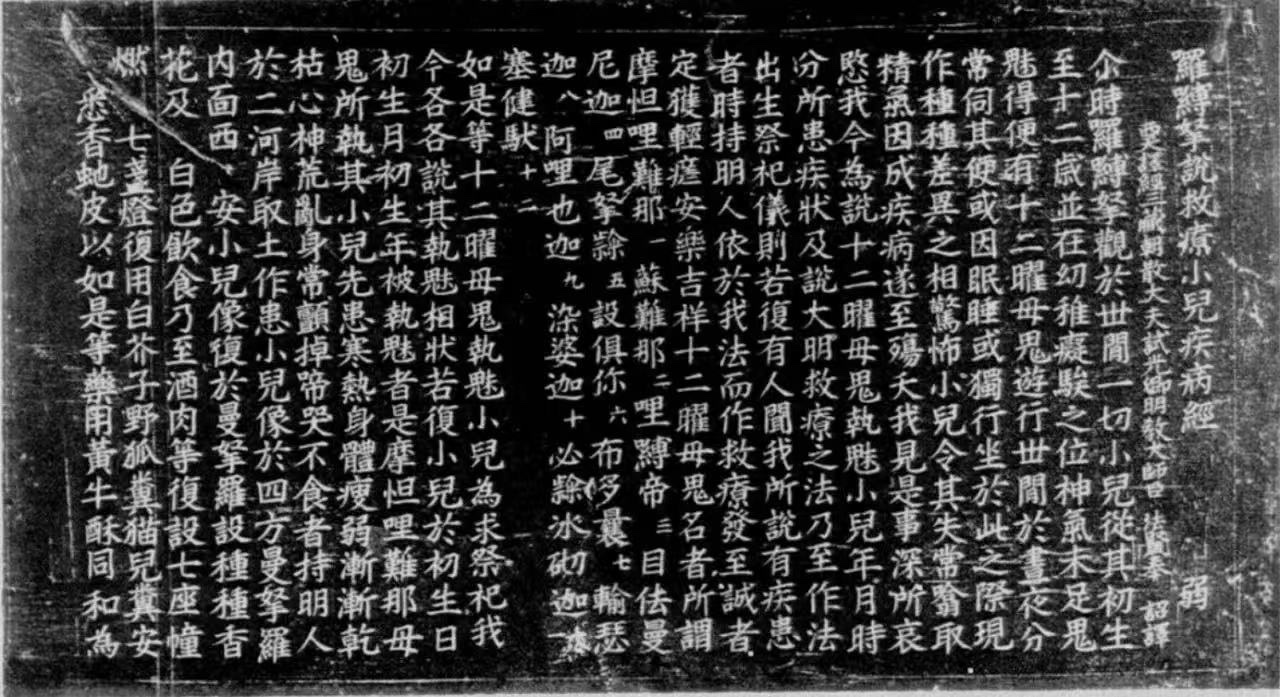 羅縛拏說救療小兒疾病經 弱
西天譯經三藏朝散大夫試光祿卿明教大師臣法賢奉 詔譯
尒時羅縛拏觀於丗間一切小兒從其初生
至十二歲並在幼稚癡騃之位神氣未足鬼
魅得便有十二曜母鬼遊行丗間於晝夜分
常伺其便或因眠睡或獨行坐於此之際現
作種種差異之相驚怖小兒令其失常翳取
精氣因成疾病遂至殤夭我見是事深所哀
愍我今為說十二曜母鬼執魅小兒年月時
分所患疾狀及說大明救療之法乃至作法
出生祭祀儀則若復有人聞我所說有疾患
者時持明人依於我法而作救療發至誠者
定獲輕瘥安樂吉祥十二曜母鬼名者所謂
摩怛哩難那一蘇難那二哩縛帝三目佉曼
尼迦四尾拏隸五設俱你六布多曩七輸瑟
迦八阿哩也迦九染婆迦十必隸冰砌迦十一
塞健馱十二
如是等十二曜母鬼執魅小兒為求祭祀我
今各各說其執魅相狀若復小兒於初生日
初生月初生年被執魅者是摩怛哩難那母
鬼所執其小兒先患寒熱身體瘦弱漸漸乾
枯心神荒亂身常顫掉啼哭不食者持明人
於二河岸取土作患小兒像於四方曼拏羅
內面西安小兒像復於曼拏羅設種種香
花及白色飲食乃至酒肉等復設七座幢
燃七盞燈復用白芥子野狐糞猫兒糞安
悉香虵皮以如是等藥用黃牛酥同和為